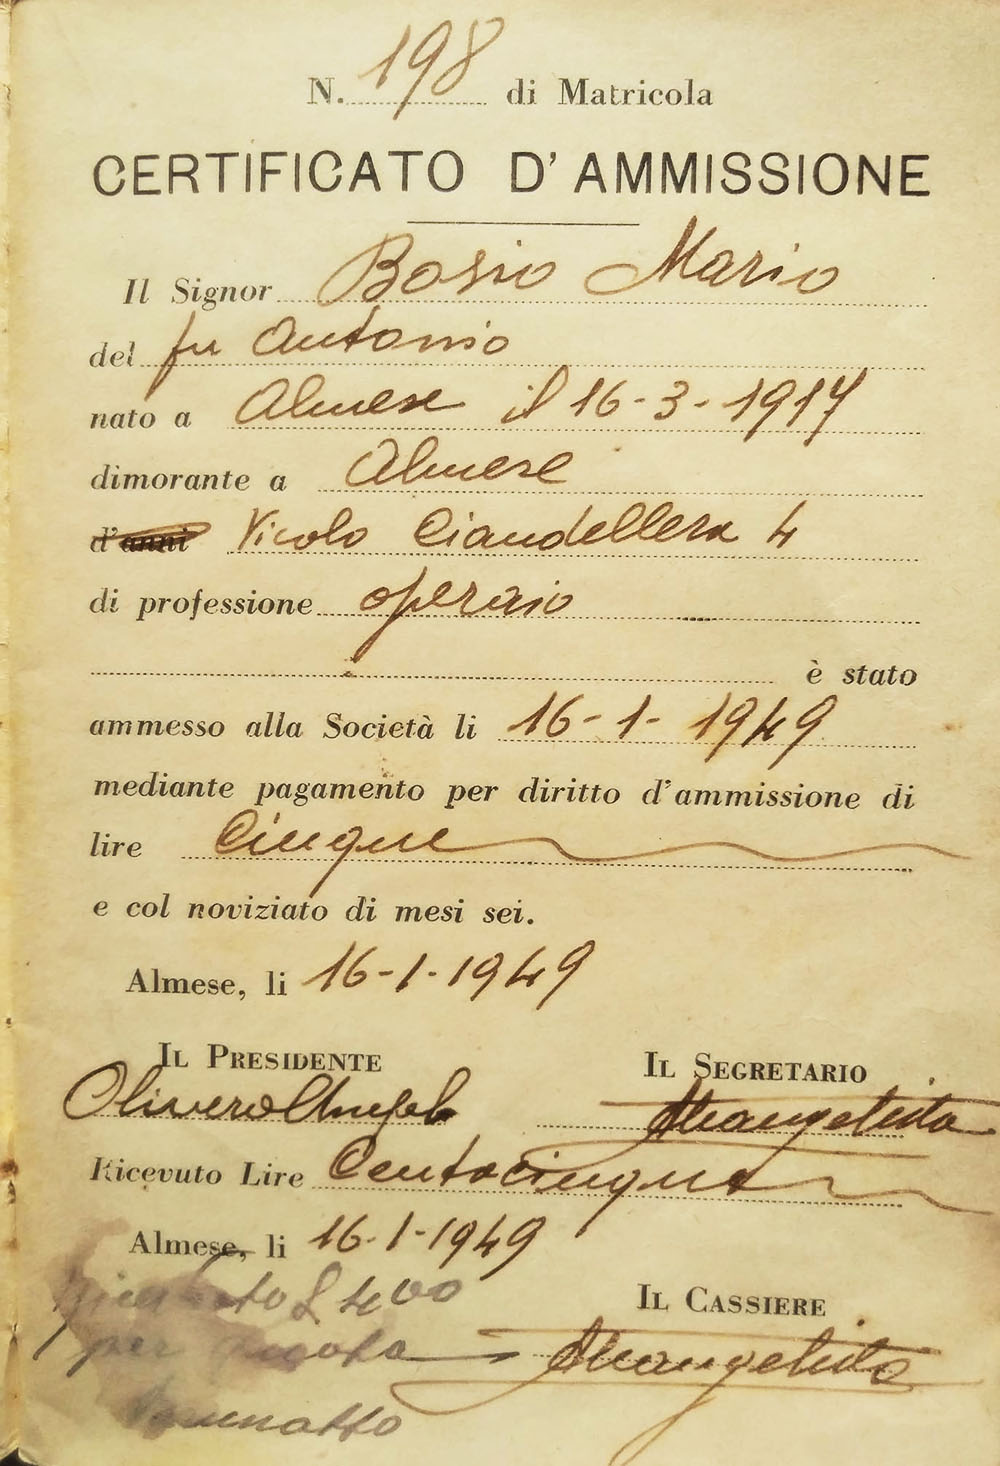 N. 198 di Matricola
CERTIFICATO D'AMMISSIONE
Il Signor Bosio Mario
del fu Antonio
nato a Almese il 16-3-1917
dimorante a Almese
d'anni Vicolo Ciandellera 4
di professione operaio
è stato
ammesso alla Società li 16-1-1949
mediante pagamento per diritto d'ammissione di
lire Cinque
e col noviziato di mesi sei.
Almese, li 16-1-1949
IL PRESIDENTE IL SEGRETARIO
Olivero Angelo
Ricevuto Lire Centocinque
Almese, li 16-1-1949
£ 400
IL CASSIERE
per